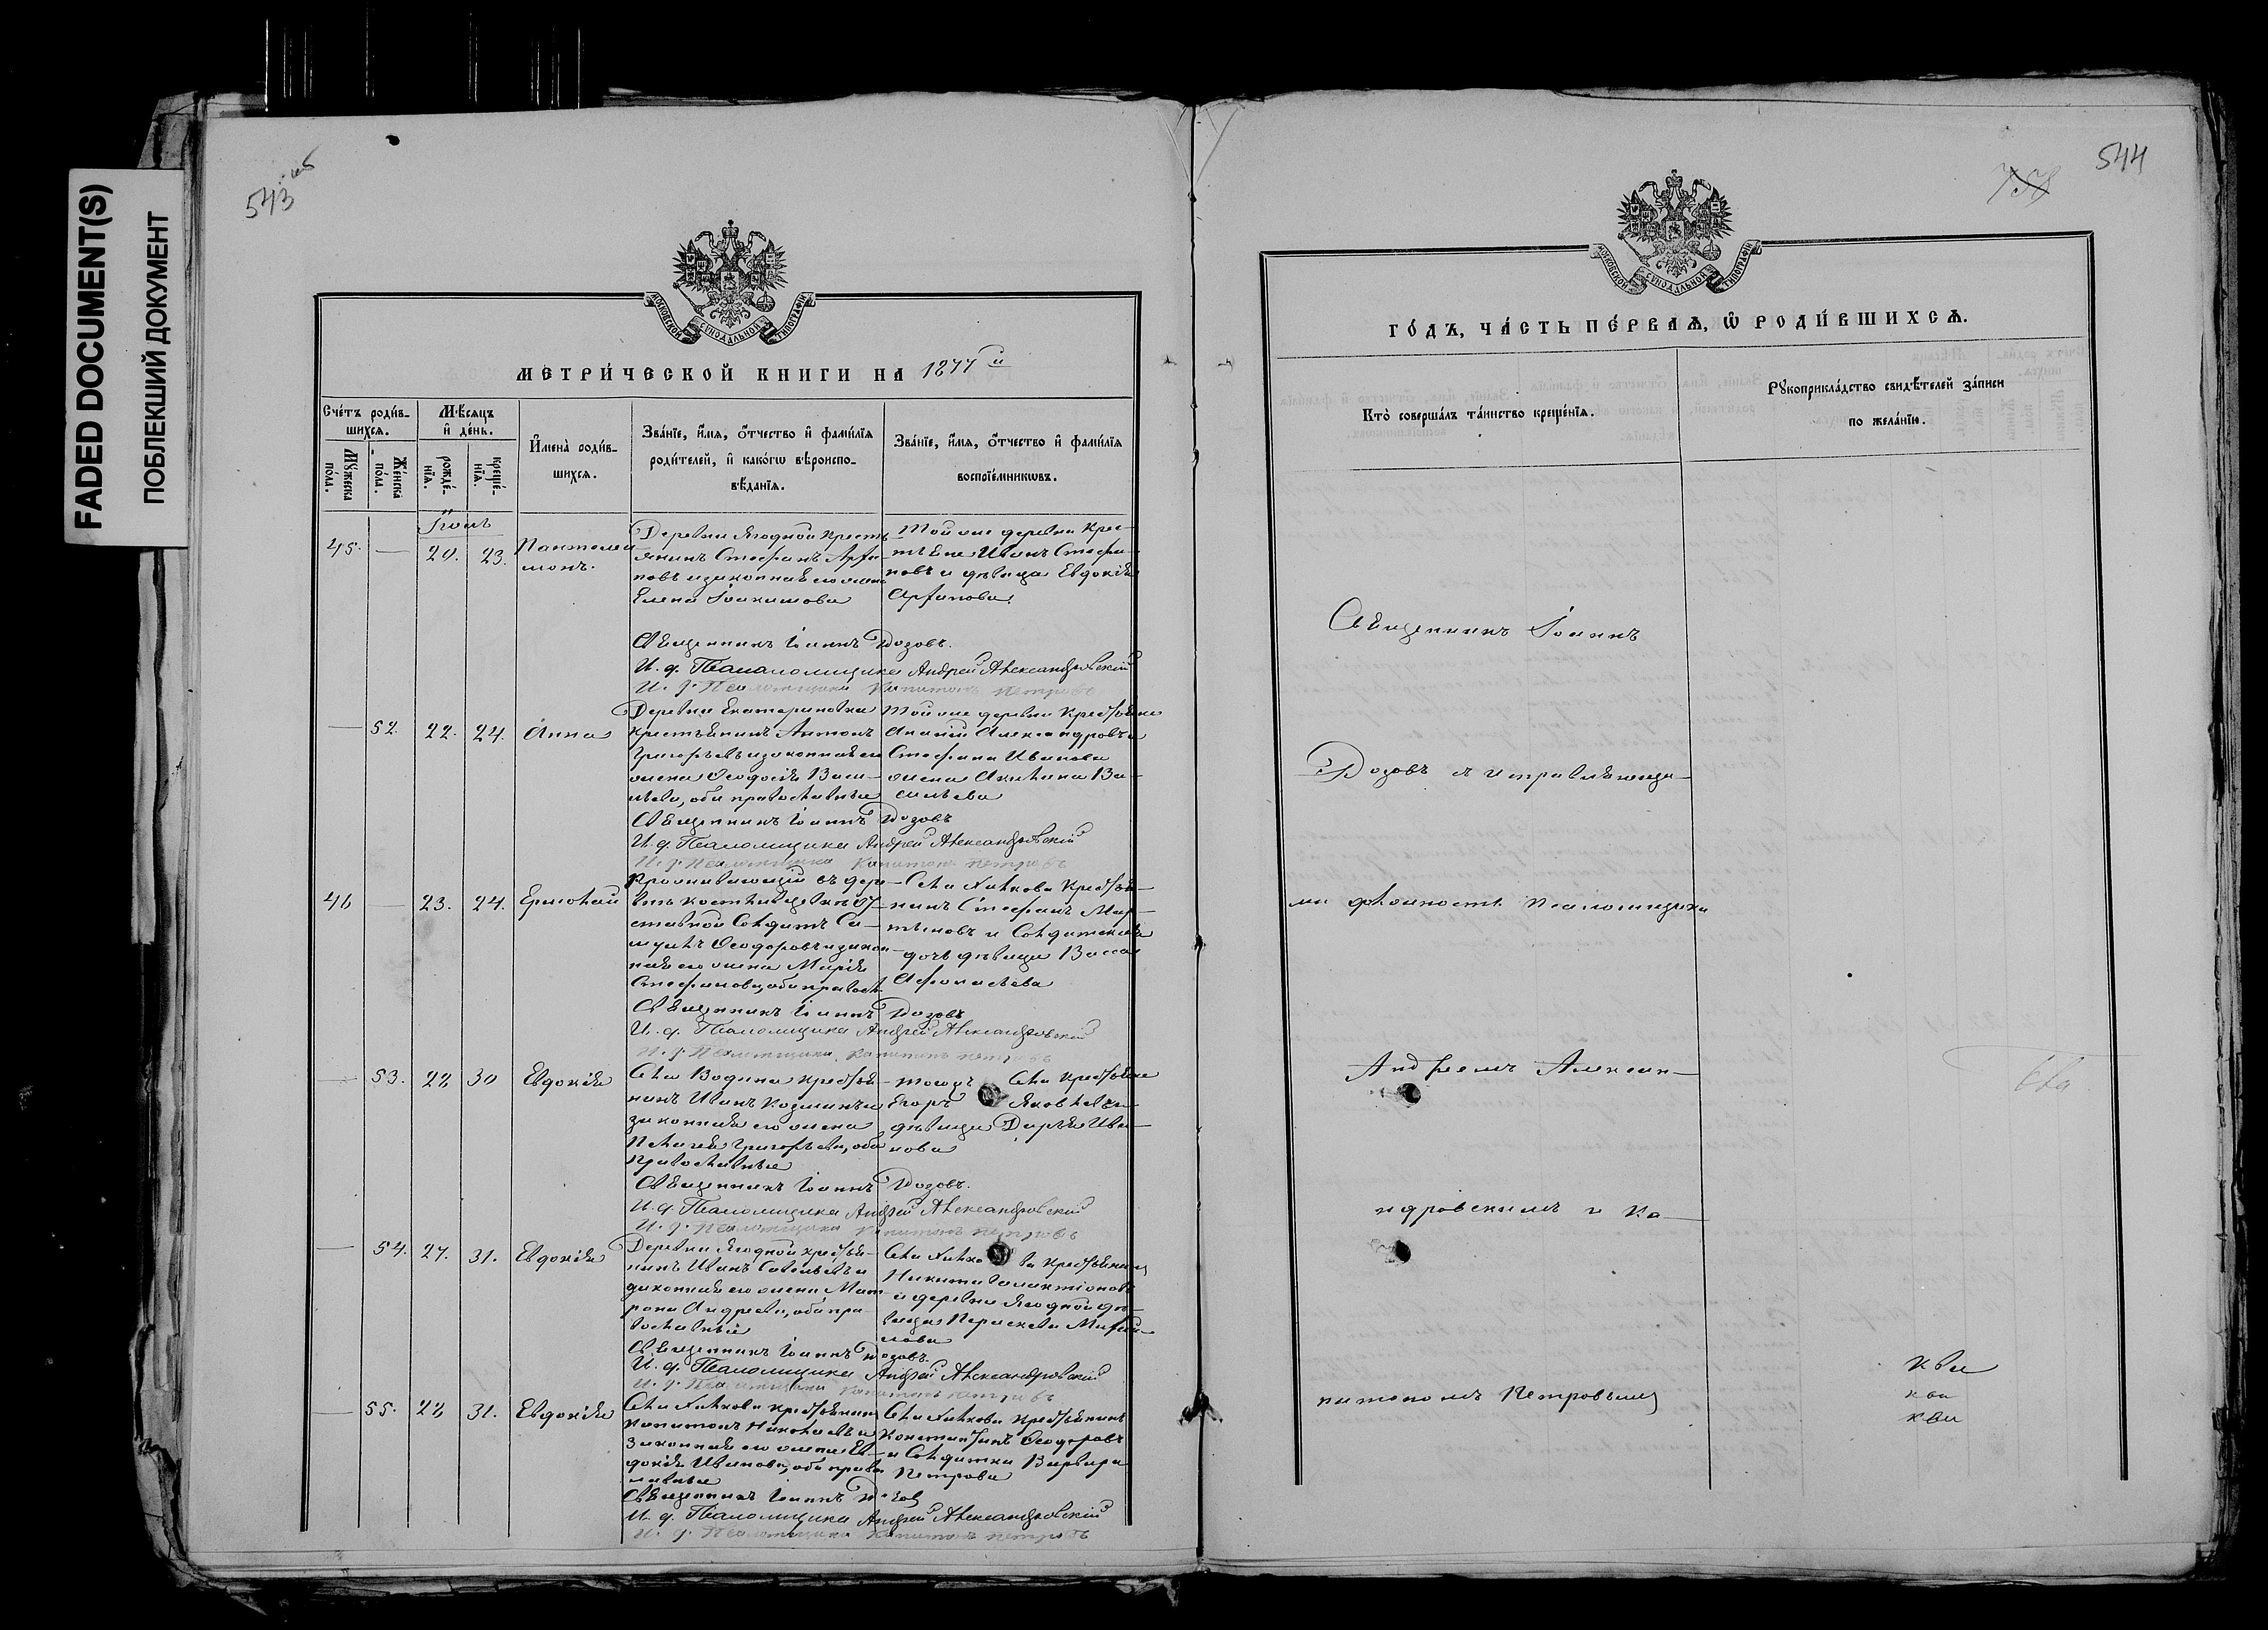 FADED DOCUMENT(S)
ПОБЛЕКШИЙ ДОКУМЕНТ
543
МОСКОВСКОЙ СѴНОДАЛЬНОЙ ТИПОГРАФІИ
МЕТРИ́ЧЕСКОЙ КНИГИ НА 1877й
Сче́тъ роди́в-
шихсѧ.
Мꙋ́жеска
по́ла.
Же́нска
по́ла.
Мѣ́сяцъ
и҆ де́нь.
рожде́-
нїѧ.
креще́-
нїѧ.
И҆мена̀ роди́в-
шихсѧ.
Зва́нїе, и҆́мѧ, ѻ҆́тчество и҆ фами́лїѧ
роди́телей, и҆ како́гѡ вѣроиспо-
вѣ́данїѧ.
Зва́нїе, и҆́мѧ, ѻ҆́тчество и҆ фами́лїѧ
воспрїе́мникѡвъ.
Іюль
45. — 20. 23. Пантелеи
монъ.
Деревни Ягодной кресть
янинъ Стефанъ Арѳи
повъ и законная его жена
Елена Іоакимова
Той же деревни крес-
тьяне Иванъ Стефа-
новъ и дѣвица Евдокія
Арѳипова.
Священникъ Іоаннъ Розовъ.
И. д. Псаломщика Андрей Александровскій
И. д. Псаломщика Капитонъ Петровъ
— 52. 22. 24. Анна
Деревни Екатериновки
крестьянинъ Антонъ
Григорьевъ и законная его
жена Ѳеодосія Васи-
льева, оба православные
Той же деревни крестьяне
Ананій Александровъ и
Стефана Иванова
жена Акилина Ва-
сильева
Священникъ Іоаннъ Розовъ
И. д. Псаломщика Андрей Александровскій
И. д. Псаломщика Капитонъ Петровъ
46 — 23. 24. Ермолай
Проживающій въ дере-
ставной Солдатъ Са-
муилъ Ѳеодоровъ и закон-
ная его жена Марія
Стефанова, оба правосл.
Села Хилкова крестья-
нинъ Стефанъ Мар-
тыновъ и Солдатская
дочь дѣвица Васса
Аѳонасьева
Священникъ Іоаннъ Розовъ
И. д. Псаломщика Андрей Александровскій
И. д. Псаломщика Капитонъ Петровъ
— 53. 28 30 Евдокія
Села Водина крестья-
нинъ Иванъ Козминъ и
законная его жена
Пелагея Григорьева, оба
православные
Тогожъ Села крестьяне
Егоръ Яковлевъ и
дѣвица Дарья Ива-
нова
Священникъ Іоаннъ Розовъ.
И. д. Псаломщика Андрей Александровскій
И. д. Псаломщика Капитонъ Петровъ
— 54. 27. 31. Евдокія
Деревни Ягодной крестья-
нинъ Иванъ Савельевъ и
законная его жена Мат-
рона Андреева, оба пра-
вославные
Села Хилкова крестьянинъ
Никита Галактіоновъ
и деревни Ягодной дѣ-
вица Параскева Михай-
лова
Священникъ Іоаннъ Розовъ.
И. д. Псаломщика Андрей Александровскій
И. д. Псаломщика Капитонъ Петровъ
— 55. 28 31. Евдокія
Села Хилкова крестьянинъ
Капитонъ Николаевъ и
законная его жена Ев-
докія Иванова, оба право
славные
Села Хилкова крестьянинъ
Константинъ Ѳеодоровъ
и Солдатка Варвара
Петрова
Священникъ Іоаннъ Розовъ
И. д. Псаломщика Андрей Александровскій
И. д. Псаломщика Капитонъ Петровъ
544
758
МОСКОВСКОЙ СѴНОДАЛЬНОЙ ТИПОГРАФІИ
ГО́ДЪ, ЧА́СТЬ ПЕ́РВАѦ, Ѡ҆ РОДИ́ВШИХСѦ.
Кто̀ соверша́лъ та́инство креще́нїѧ.
Рꙋкоприкла́дство свидѣ́телей за́писи
по жела́нїю.
Священникъ Іоаннъ
Розовъ съ исправляющи-
ми должность псаломщика
Андреемъ Алексан-
дровскимъ и Ка-
питономъ Петровымъ